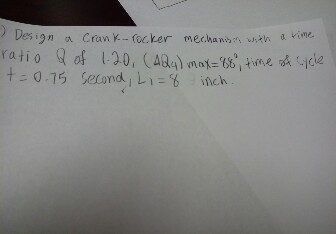 ) Design a Crank-rocker mechanism with a time
ratio Q of 1.20, (ΔQ4) max=88°, time of cycle
t = 0.75 second, L1 = 8 inch.